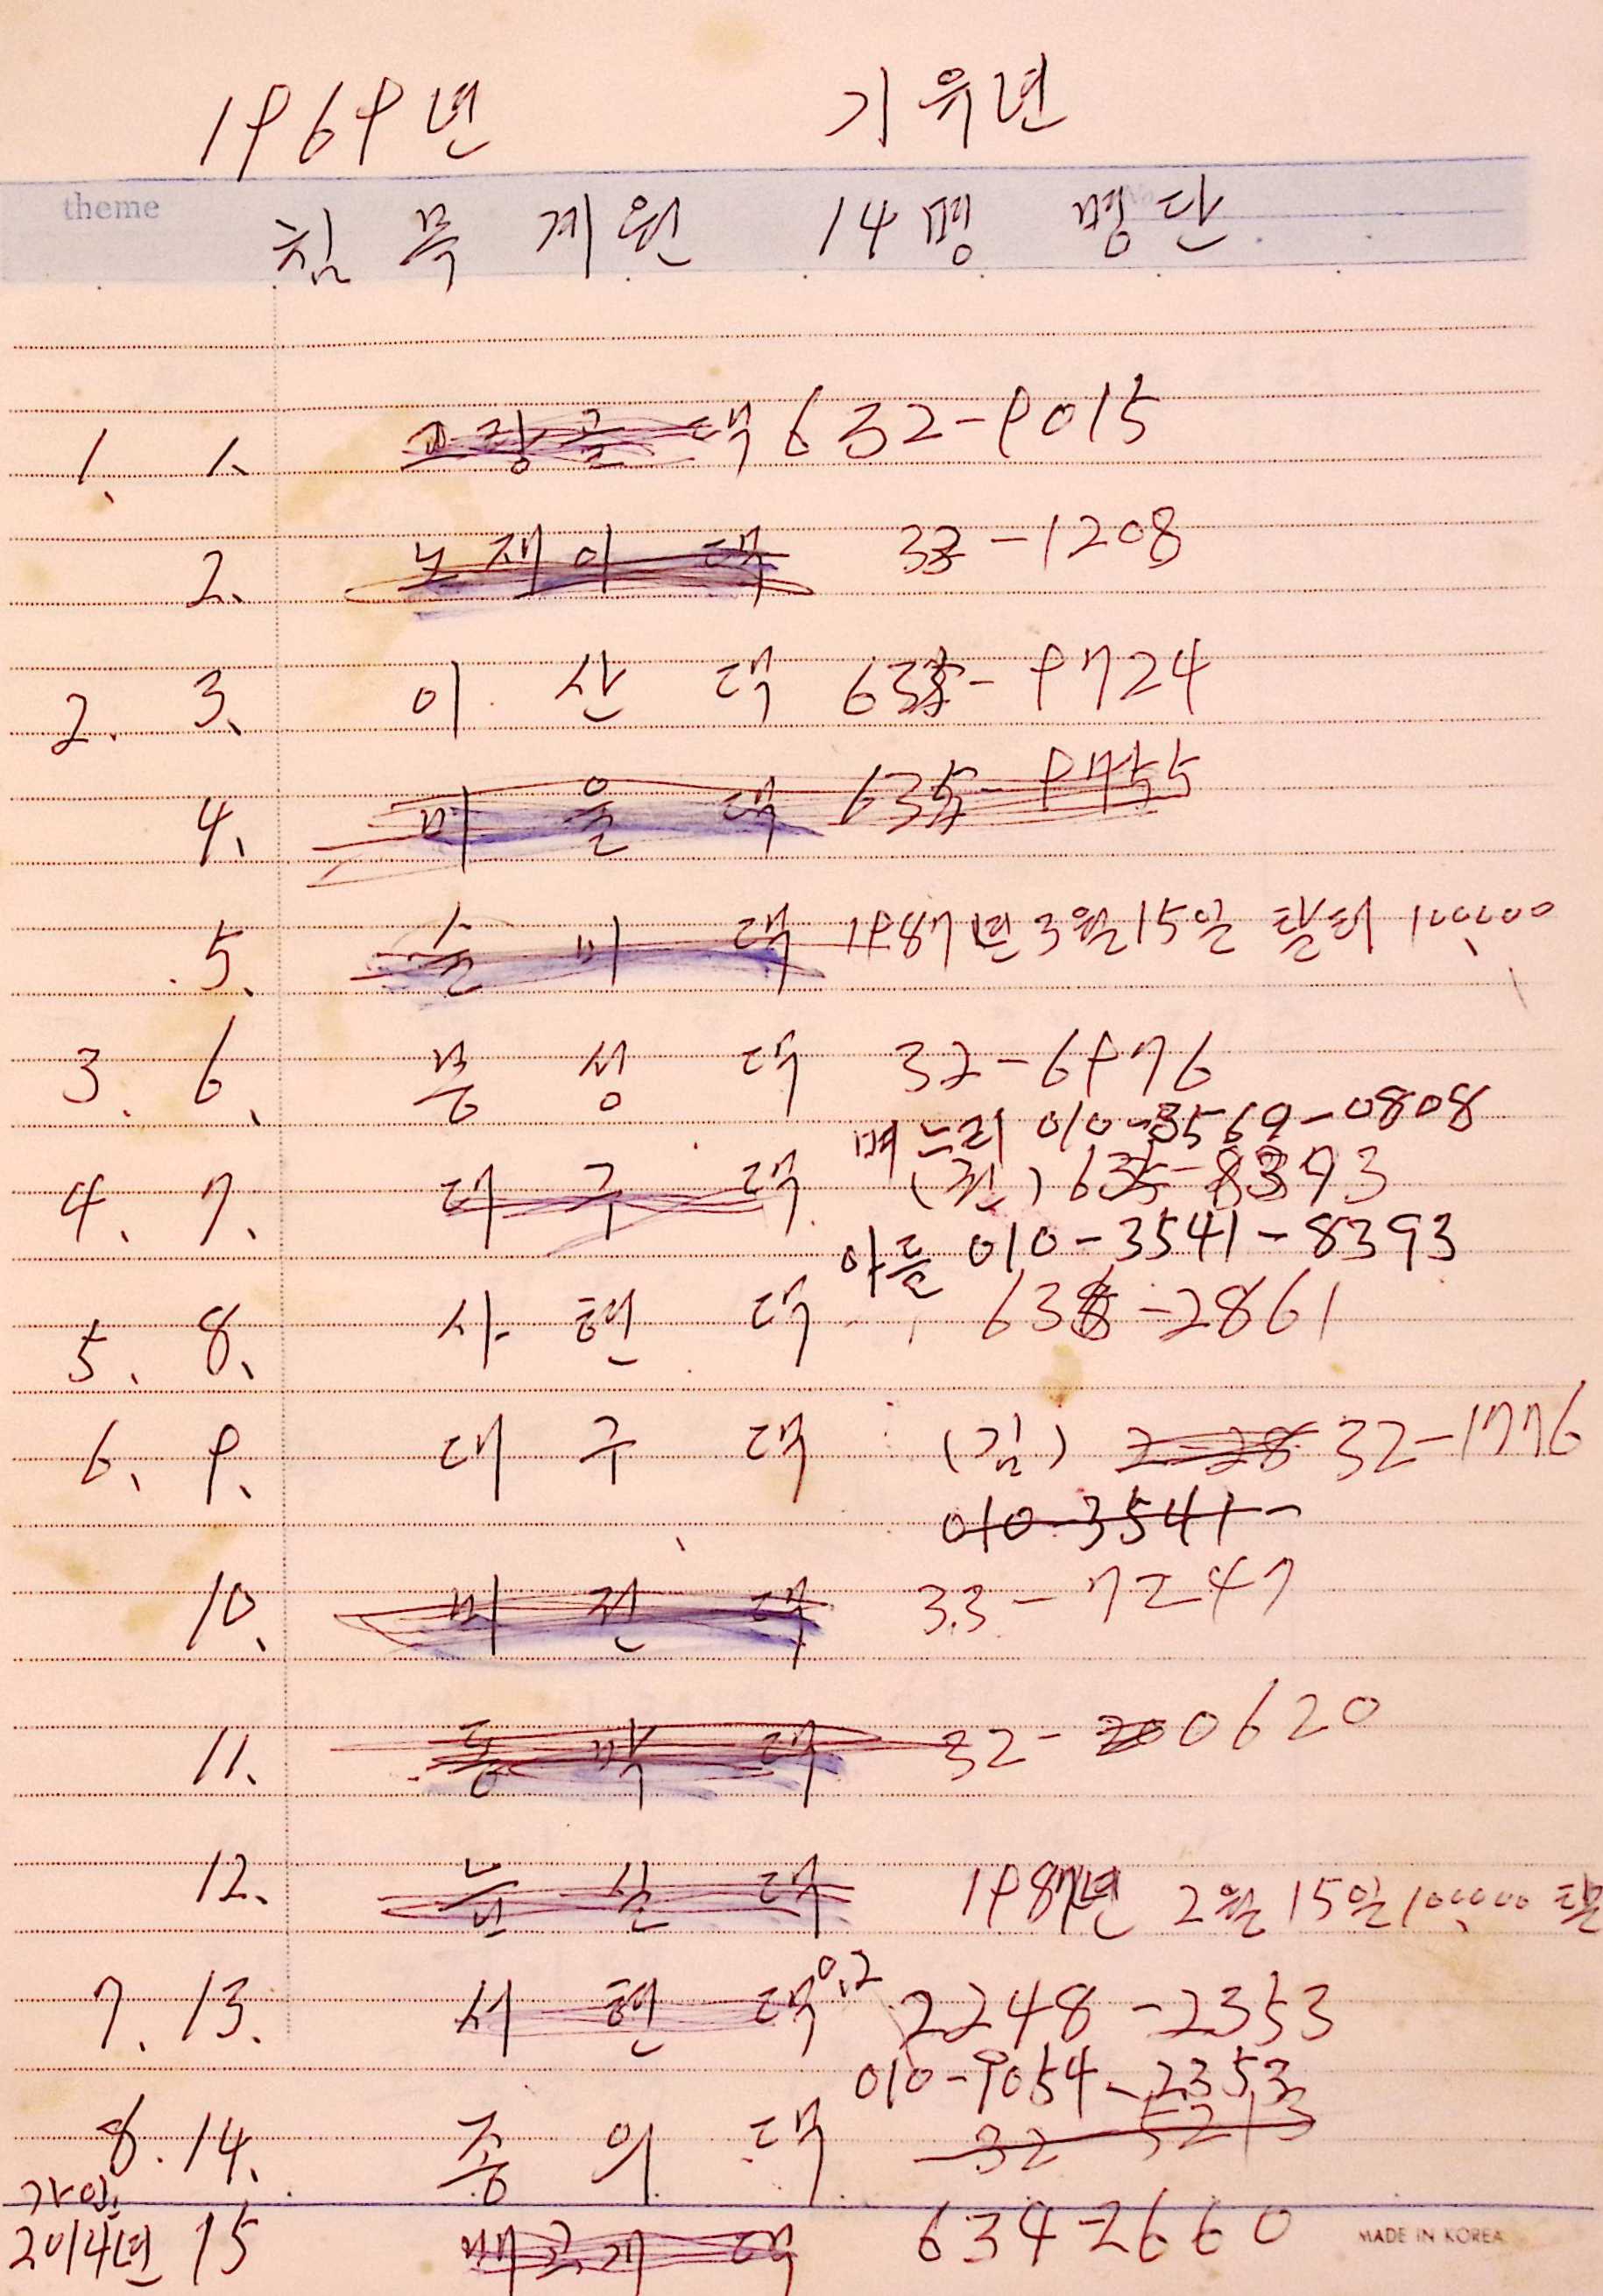 1969년 기유년
theme
친목계원 14명 명단
1. 1. 고랑골댁 632-9015
2. 노재이댁 33-1208
2. 3. 이산댁 63 - 9724
4. 미울댁 63 - 9755
5. 송비댁 1987년 3월 15일 탈퇴 100,000
3. 6. 봉성댁 32-6976
며느리 010-3569-0808
4. 7. 대구댁 (권) 635-8393
아들 010-3541-8393
5. 8. 사현댁 638-2861
6. 9. 대구댁 (김) 32-1776
010-3541-
10. 비진댁 33-7247
11. 동막댁 32-0620
12. 댁 1987년 2월 15일 100,000 탈
7. 13. 서현댁 02 2248-2353
010-9054-2353
8. 14. 종의댁 32-5213
가입
2014년 15 댁 634-2660
MADE IN KOREA